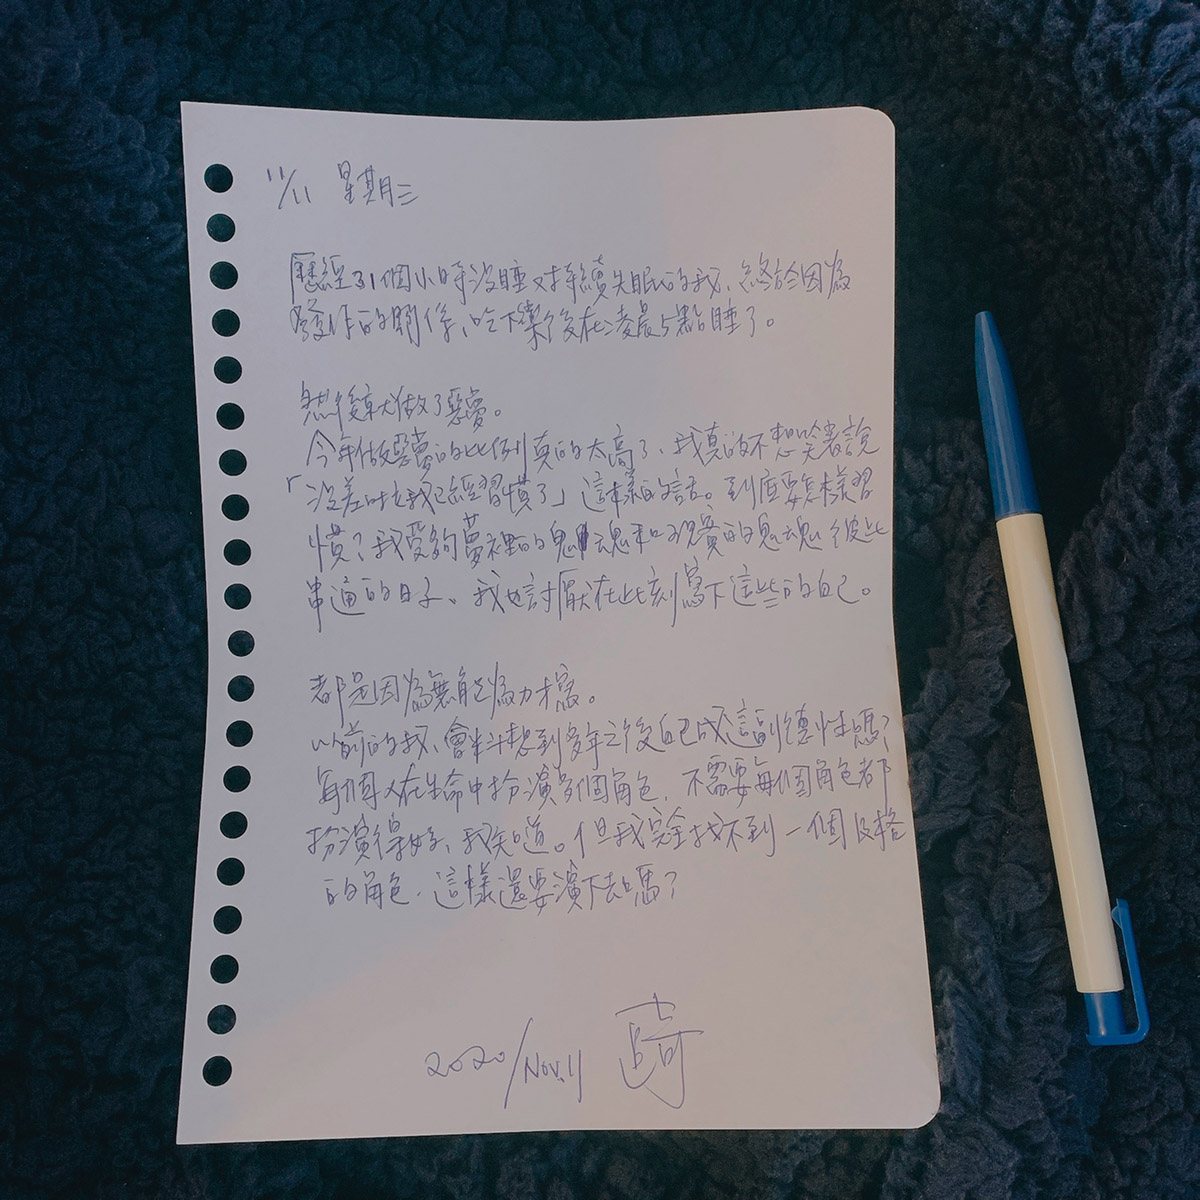 11/11 星期三
歷經31個小時沒睡又持續失眠的我、終於因為
發作的關係、吃下藥後在凌晨5點睡了。
然後就做了惡夢。
今年做惡夢的比例真的太高了、我真的不想笑著說
「沒差啦我已經習慣了」這樣的話。到底要怎樣習
慣？我受夠夢裡的鬼魂和現實的鬼魂彼此
串通的日子、我也討厭在此刻寫下這些的自己。
都是因為無能為力才寫。
以前的我、會料想到多年之後自己成這副德性嗎？
每個人在生命中扮演多個角色、不需要每個角色都
扮演得好、我知道。但我完全找不到一個及格
的角色、這樣還要演下去嗎？
2020/Nov.11